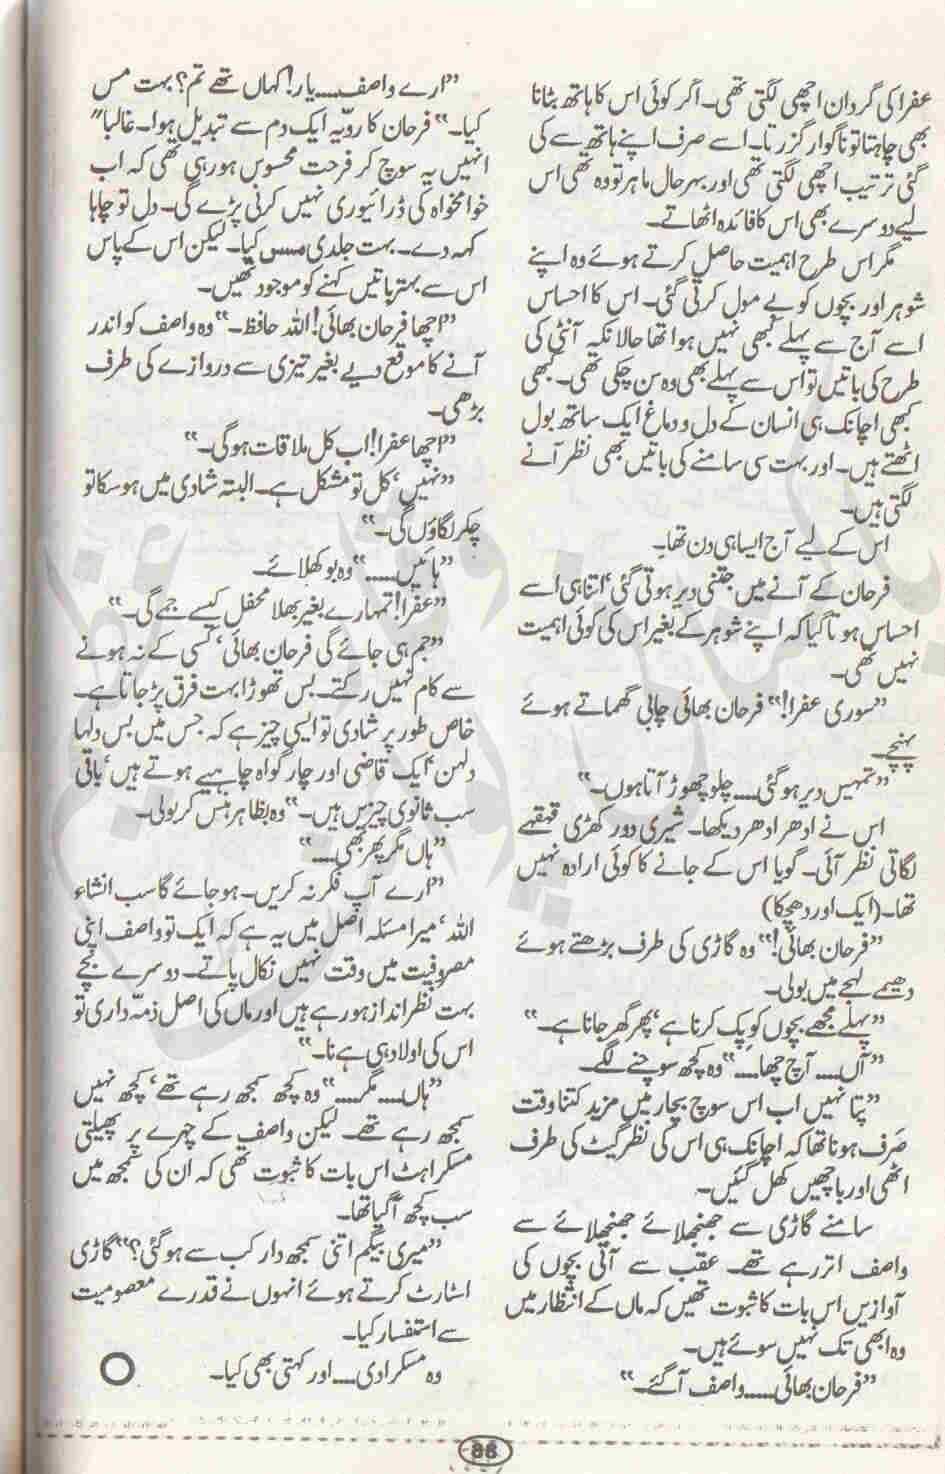 عفرا کی گردان اچھی لگتی تھی۔ اگر کوئی اس کا ہاتھ بٹانا
بھی چاہتا تو ناگوار گزرتا۔ اسے صرف اپنے ہاتھ سے کی
گئی ترتیب اچھی لگتی تھی اور بہرحال ماہر تو وہ تھی اس
لیے دوسرے بھی اس کا فائدہ اٹھاتے۔
مگر اس طرح اہمیت حاصل کرتے ہوئے وہ اپنے
شوہر اور بچوں کو بے مول کرتی گئی۔ اس کا احساس
اسے آج سے پہلے کبھی نہیں ہوا تھا حالانکہ آنٹی کی
طرح کی باتیں تو اس سے پہلے بھی وہ سن چکی تھی۔ کبھی
کبھی اچانک ہی انسان کے دل و دماغ ایک ساتھ بول
اٹھتے ہیں۔ اور بہت سی سامنے کی باتیں بھی نظر آنے
لگتی ہیں۔
اس کے لیے آج ایسا ہی دن تھا۔
فرحان کے آنے میں جتنی دیر ہوتی گئی‘ اتنا ہی اسے
احساس ہوتا گیا کہ اپنے شوہر کے بغیر اس کی کوئی اہمیت
نہیں تھی۔
”سوری عفرا!“ فرحان بھائی چابی گھماتے ہوئے
پہنچے۔
”تمہیں دیر ہو گئی.... چلو چھوڑ آتا ہوں۔“
اس نے ادھر ادھر دیکھا۔ شیری دور کھڑی قہقہے
لگاتی نظر آئی۔ گویا اس کے جانے کا کوئی ارادہ نہیں
تھا۔ (ایک اور دھچکا)
”فرحان بھائی!“ وہ گاڑی کی طرف بڑھتے ہوئے
دھیمے لہجے میں بولی۔
”پہلے مجھے بچوں کو پک کرنا ہے‘ پھر گھر جانا ہے۔“
”آں.... آچ چھا....“ وہ کچھ سوچنے لگے۔
”پتا نہیں اب اس سوچ بچار میں مزید کتنا وقت
صَرف ہونا تھا کہ اچانک ہی اس کی نظر گیٹ کی طرف
اٹھی اور باچھیں کھل گئیں۔
سامنے گاڑی سے جھنجلائے جھنجلائے سے
واصف اتر رہے تھے۔ عقب سے آتی بچوں کی
آوازیں اس بات کا ثبوت تھیں کہ ماں کے انتظار میں
وہ ابھی تک نہیں سوئے ہیں۔
”فرحان بھائی..... واصف آگئے۔“
”ارے واصف.... یار! کہاں تھے تم؟ بہت مس
کیا۔“ فرحان کا رویّہ ایک دم سے تبدیل ہوا۔ غالباً“
انہیں یہ سوچ کر فرحت محسوس ہو رہی تھی کہ اب
خوامخواہ کی ڈرائیوری نہیں کرنی پڑے گی۔ دل تو چاہا
کہہ دے۔ بہت جلدی مسس کیا۔ لیکن اس کے پاس
اس سے بہتر باتیں کہنے کو موجود تھیں۔
”اچھا فرحان بھائی! اللہ حافظ۔“ وہ واصف کو اندر
آنے کا موقع دیے بغیر تیزی سے دروازے کی طرف
بڑھی۔
”اچھا عفرا! اب کل ملاقات ہوگی۔“
”نہیں‘ کل تو مشکل ہے۔ البتہ شادی میں ہو سکا تو
چکر لگاؤں گی۔“
”ہائیں.....“ وہ بوکھلائے۔
”عفرا! تمہارے بغیر بھلا محفل کیسے جمے گی۔“
”جم ہی جائے گی فرحان بھائی‘ کسی کے نہ ہونے
سے کام نہیں رکتے۔ بس تھوڑا بہت فرق پڑ جاتا ہے۔
خاص طور پر شادی تو ایسی چیز ہے کہ جس میں بس دلہا
دلہن‘ ایک قاضی اور چار گواہ چاہیے ہوتے ہیں‘ باقی
سب ثانوی چیزیں ہیں۔“ وہ بظاہر ہنس کر بولی۔
”ہاں مگر پھر بھی....“
”ارے آپ فکر نہ کریں۔ ہو جائے گا سب انشاء
اللہ‘ میرا مسئلہ اصل میں یہ ہے کہ ایک تو واصف اپنی
مصروفیت میں وقت نہیں نکال پاتے۔ دوسرے بچے
بہت نظر انداز ہو رہے ہیں اور ماں کی اصل ذمّہ داری تو
اس کی اولاد ہی ہے نا۔“
”ہاں.... مگر....“ وہ کچھ سمجھ رہے تھے‘ کچھ نہیں
سمجھ رہے تھے۔ لیکن واصف کے چہرے پر پھیلتی
مسکراہٹ اس بات کا ثبوت تھی کہ ان کی سمجھ میں
سب کچھ آ گیا تھا۔
”میری بیگم اتنی سمجھ دار کب سے ہو گئی؟“ گاڑی
اسٹارٹ کرتے ہوئے انہوں نے قدرے معصومیت
سے استفسار کیا۔
وہ مسکرا دی.... اور کہتی بھی کیا۔
88